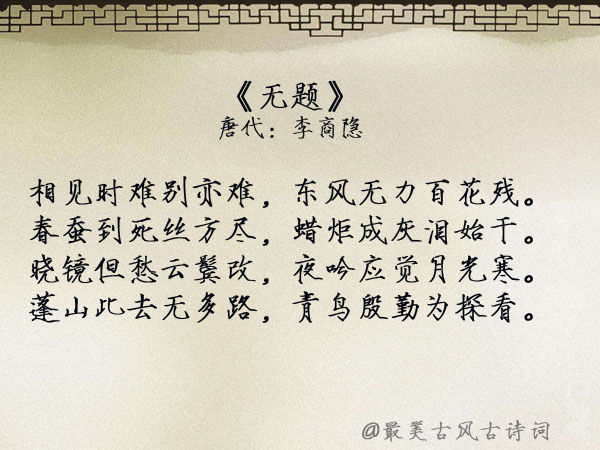 《无题》
唐代：李商隐
相见时难别亦难，东风无力百花残。
春蚕到死丝方尽，蜡炬成灰泪始干。
晓镜但愁云鬓改，夜吟应觉月光寒。
蓬山此去无多路，青鸟殷勤为探看。
@最美古风古诗词